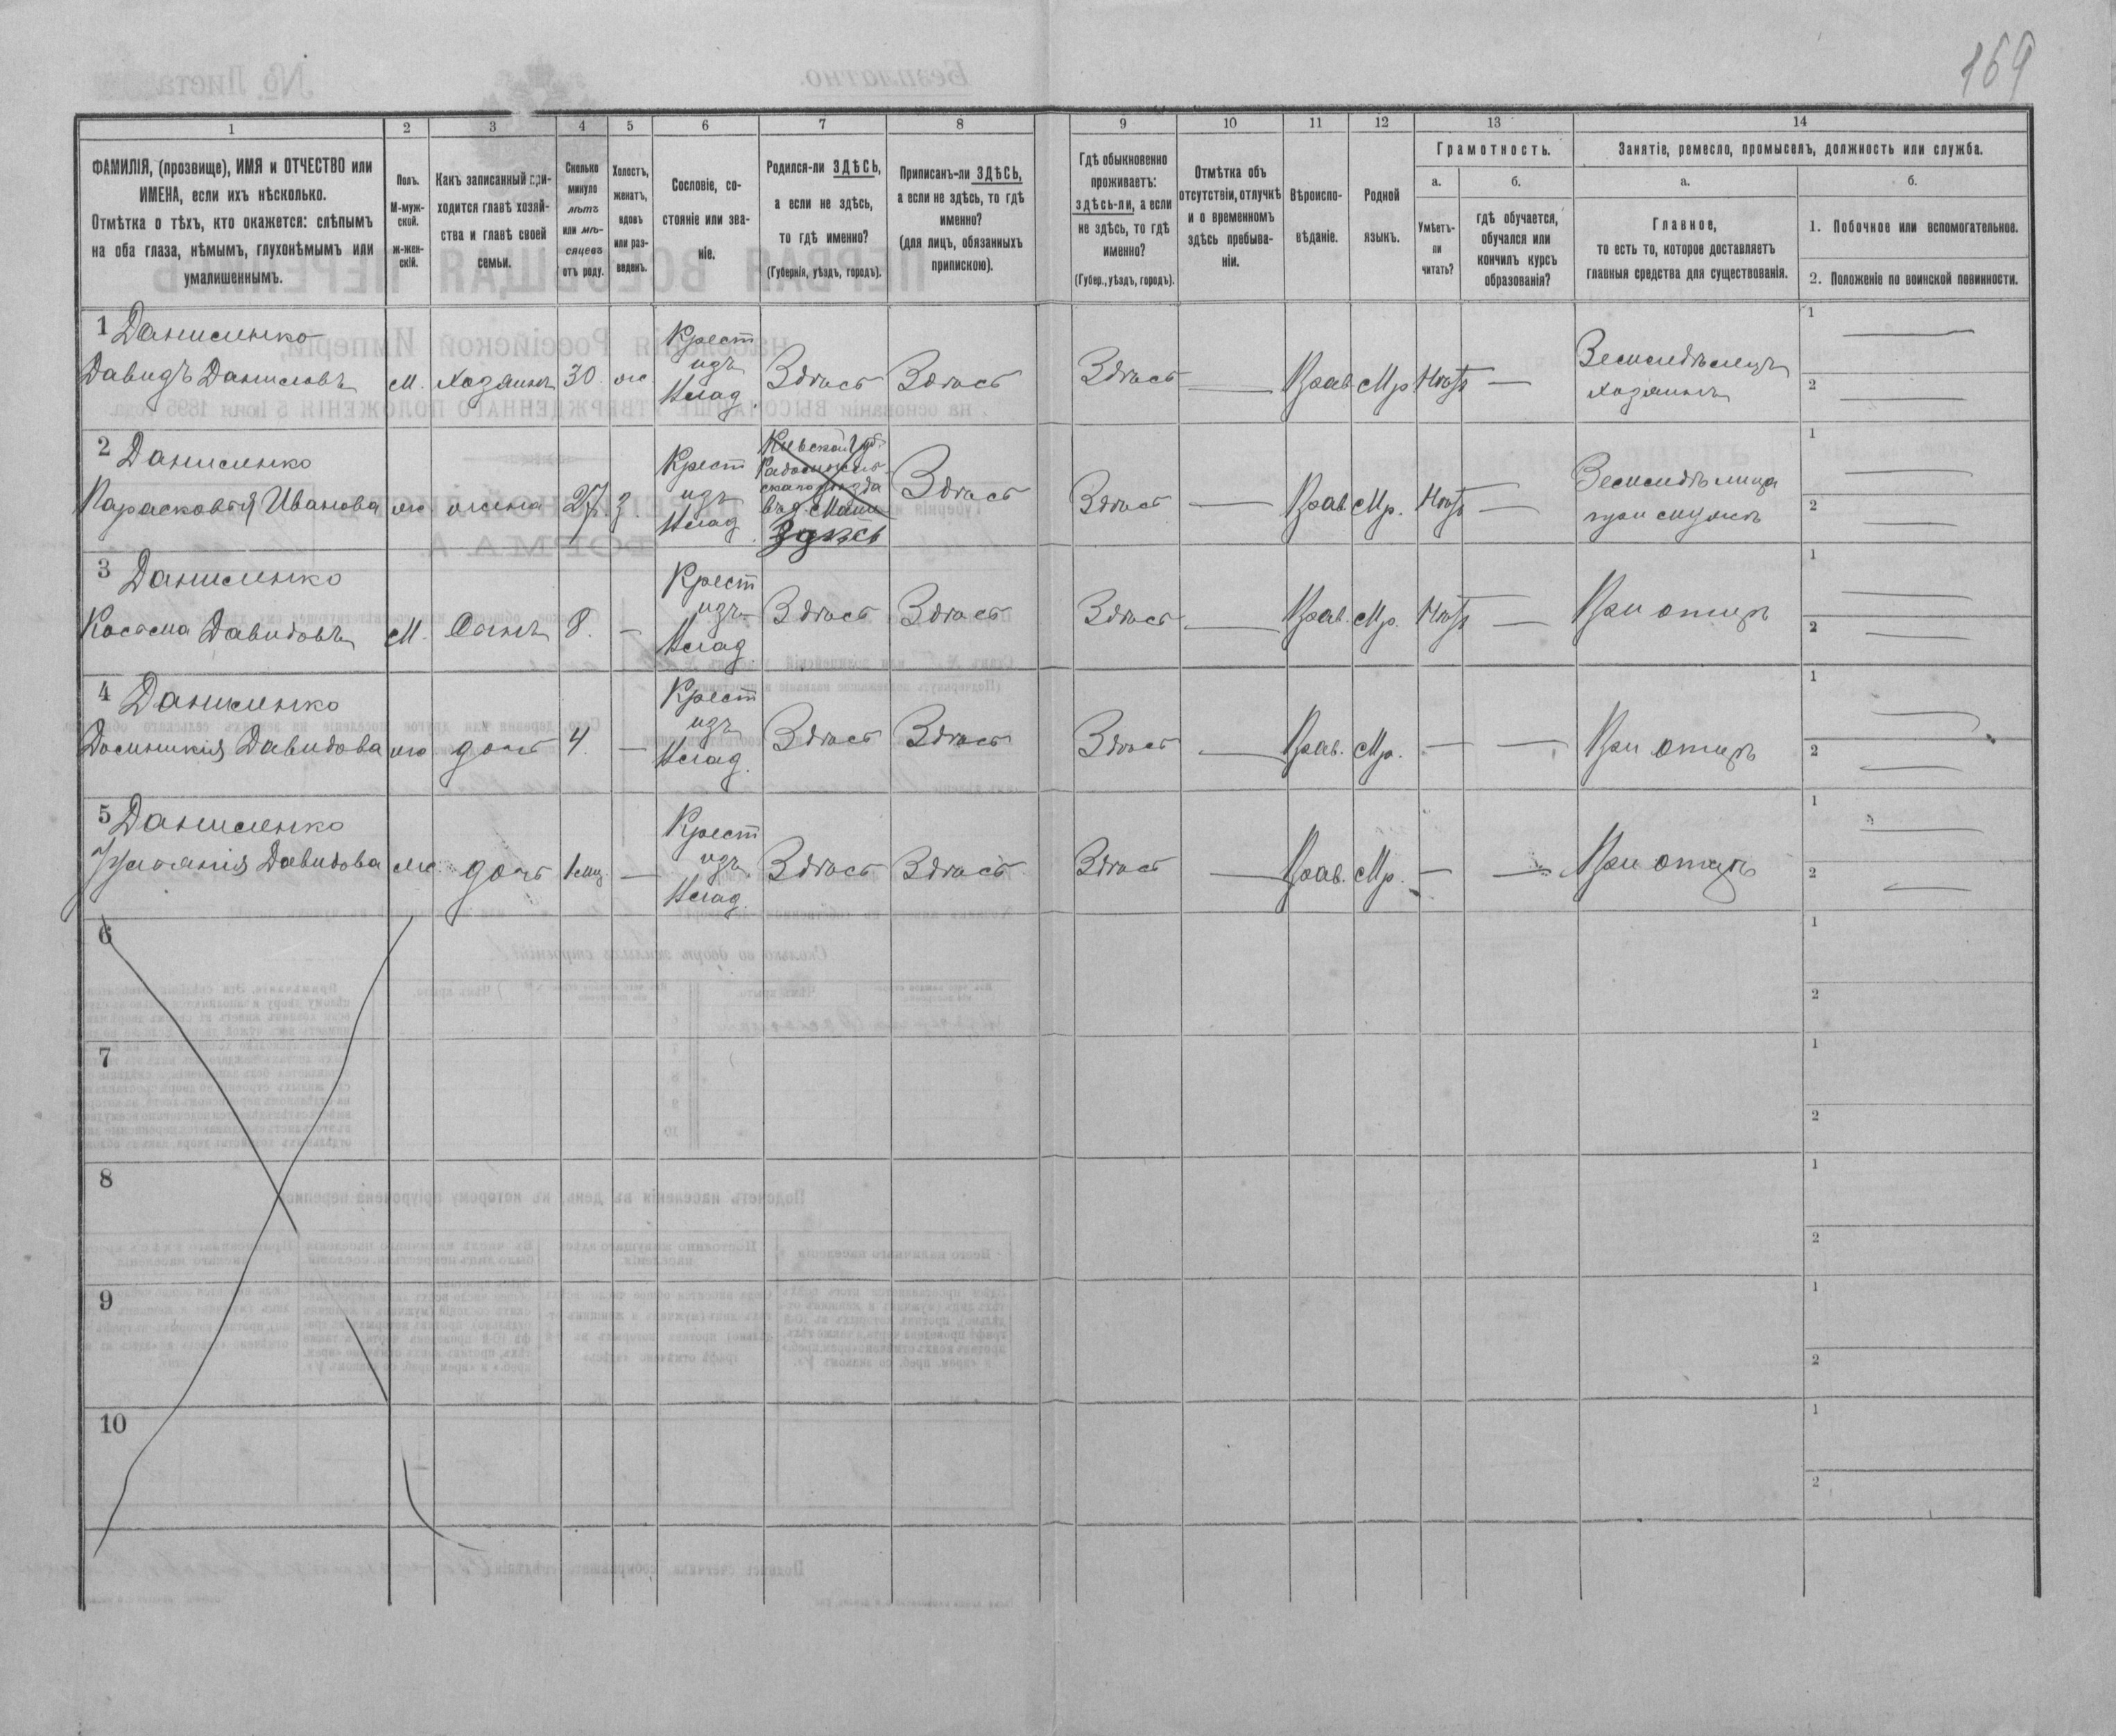 169
1
2
3
4
5
6
7
8
9
10
11
12
13
14
ФАМИЛІЯ, (прозвище), ИМЯ и ОТЧЕСТВО или
ИМЕНА, если ихъ нѣсколько.
Отмѣтка о тѣхъ, кто окажется: слѣпымъ
на оба глаза, нѣмымъ, глухонѣмымъ или
умалишеннымъ.
Полъ.
М-муж-
ской.
ж-жен-
скій.
Какъ записанный при-
ходится главѣ хозяй-
ства и главѣ своей
семьи.
Сколько
минуло
лѣтъ
или мѣ-
сяцевъ
отъ роду.
Холостъ,
женатъ,
вдовъ
или раз-
веденъ.
Сословіе, со-
стояніе или зва-
ніе.
Родился-ли ЗДѢСЬ,
а если не здѣсь,
то гдѣ именно?
(Губернія, уѣздъ, городъ).
Приписанъ-ли ЗДѢСЬ,
а если не здѣсь, то гдѣ
именно?
(для лицъ, обязанныхъ
припискою).
Гдѣ обыкновенно
проживаетъ:
здѣсь-ли, а если
не здѣсь, то гдѣ
именно?
(Губер., уѣздъ, городъ).
Отмѣтка объ
отсутствіи, отлучкѣ
и о временномъ
здѣсь пребыва-
ніи.
Вѣроиспо-
вѣданіе.
Родной
языкъ.
Грамотность.
а.
Умѣетъ-
ли
читать?
б.
гдѣ обучается,
обучался или
кончилъ курсъ
образованія?
Занятіе, ремесло, промыселъ, должность или служба.
а.
Главное,
то есть то, которое доставляетъ
главныя средства для существованія.
б.
1. Побочное или вспомогательное.
2. Положеніе по воинской повинности.
1 Данисенко
Давидъ Даниловъ м. хозяинъ 30 ж. Крест изъ Влад. Здѣсь Здѣсь Здѣсь — Прав. Мр. Нѣтъ — Земледѣлецъ хозяинъ
1 —
2 —
2 Данисенко
Парасковья Иванова ж жена 27 з. Крест изъ Влад. Кіевской Губ. Радомысль-скаго уѣзда Здѣсь Здѣсь Здѣсь — Прав. Мр. Нѣтъ — Земледѣлица при мужѣ
1 —
2 —
3 Данисенко
Косьма Давидовъ М. Сынъ 8. — Крест изъ Влад Здѣсь Здѣсь Здѣсь — Прав. Мр. Нѣтъ — При отцѣ
1 —
2 —
4 Данисенко
Домникія Давидова ж дочь 4. — Крест изъ Влад. Здѣсь Здѣсь Здѣсь — Прав. Мр. — — При отцѣ
1 —
2 —
5 Данисенко
Давидова ж дочь 1 мѣс — Крест изъ Влад. Здѣсь Здѣсь Здѣсь — Прав. Мр. — — При отцѣ
1 —
2 —
6
1
2
7
1
2
8
1
2
9
1
2
10
1
2